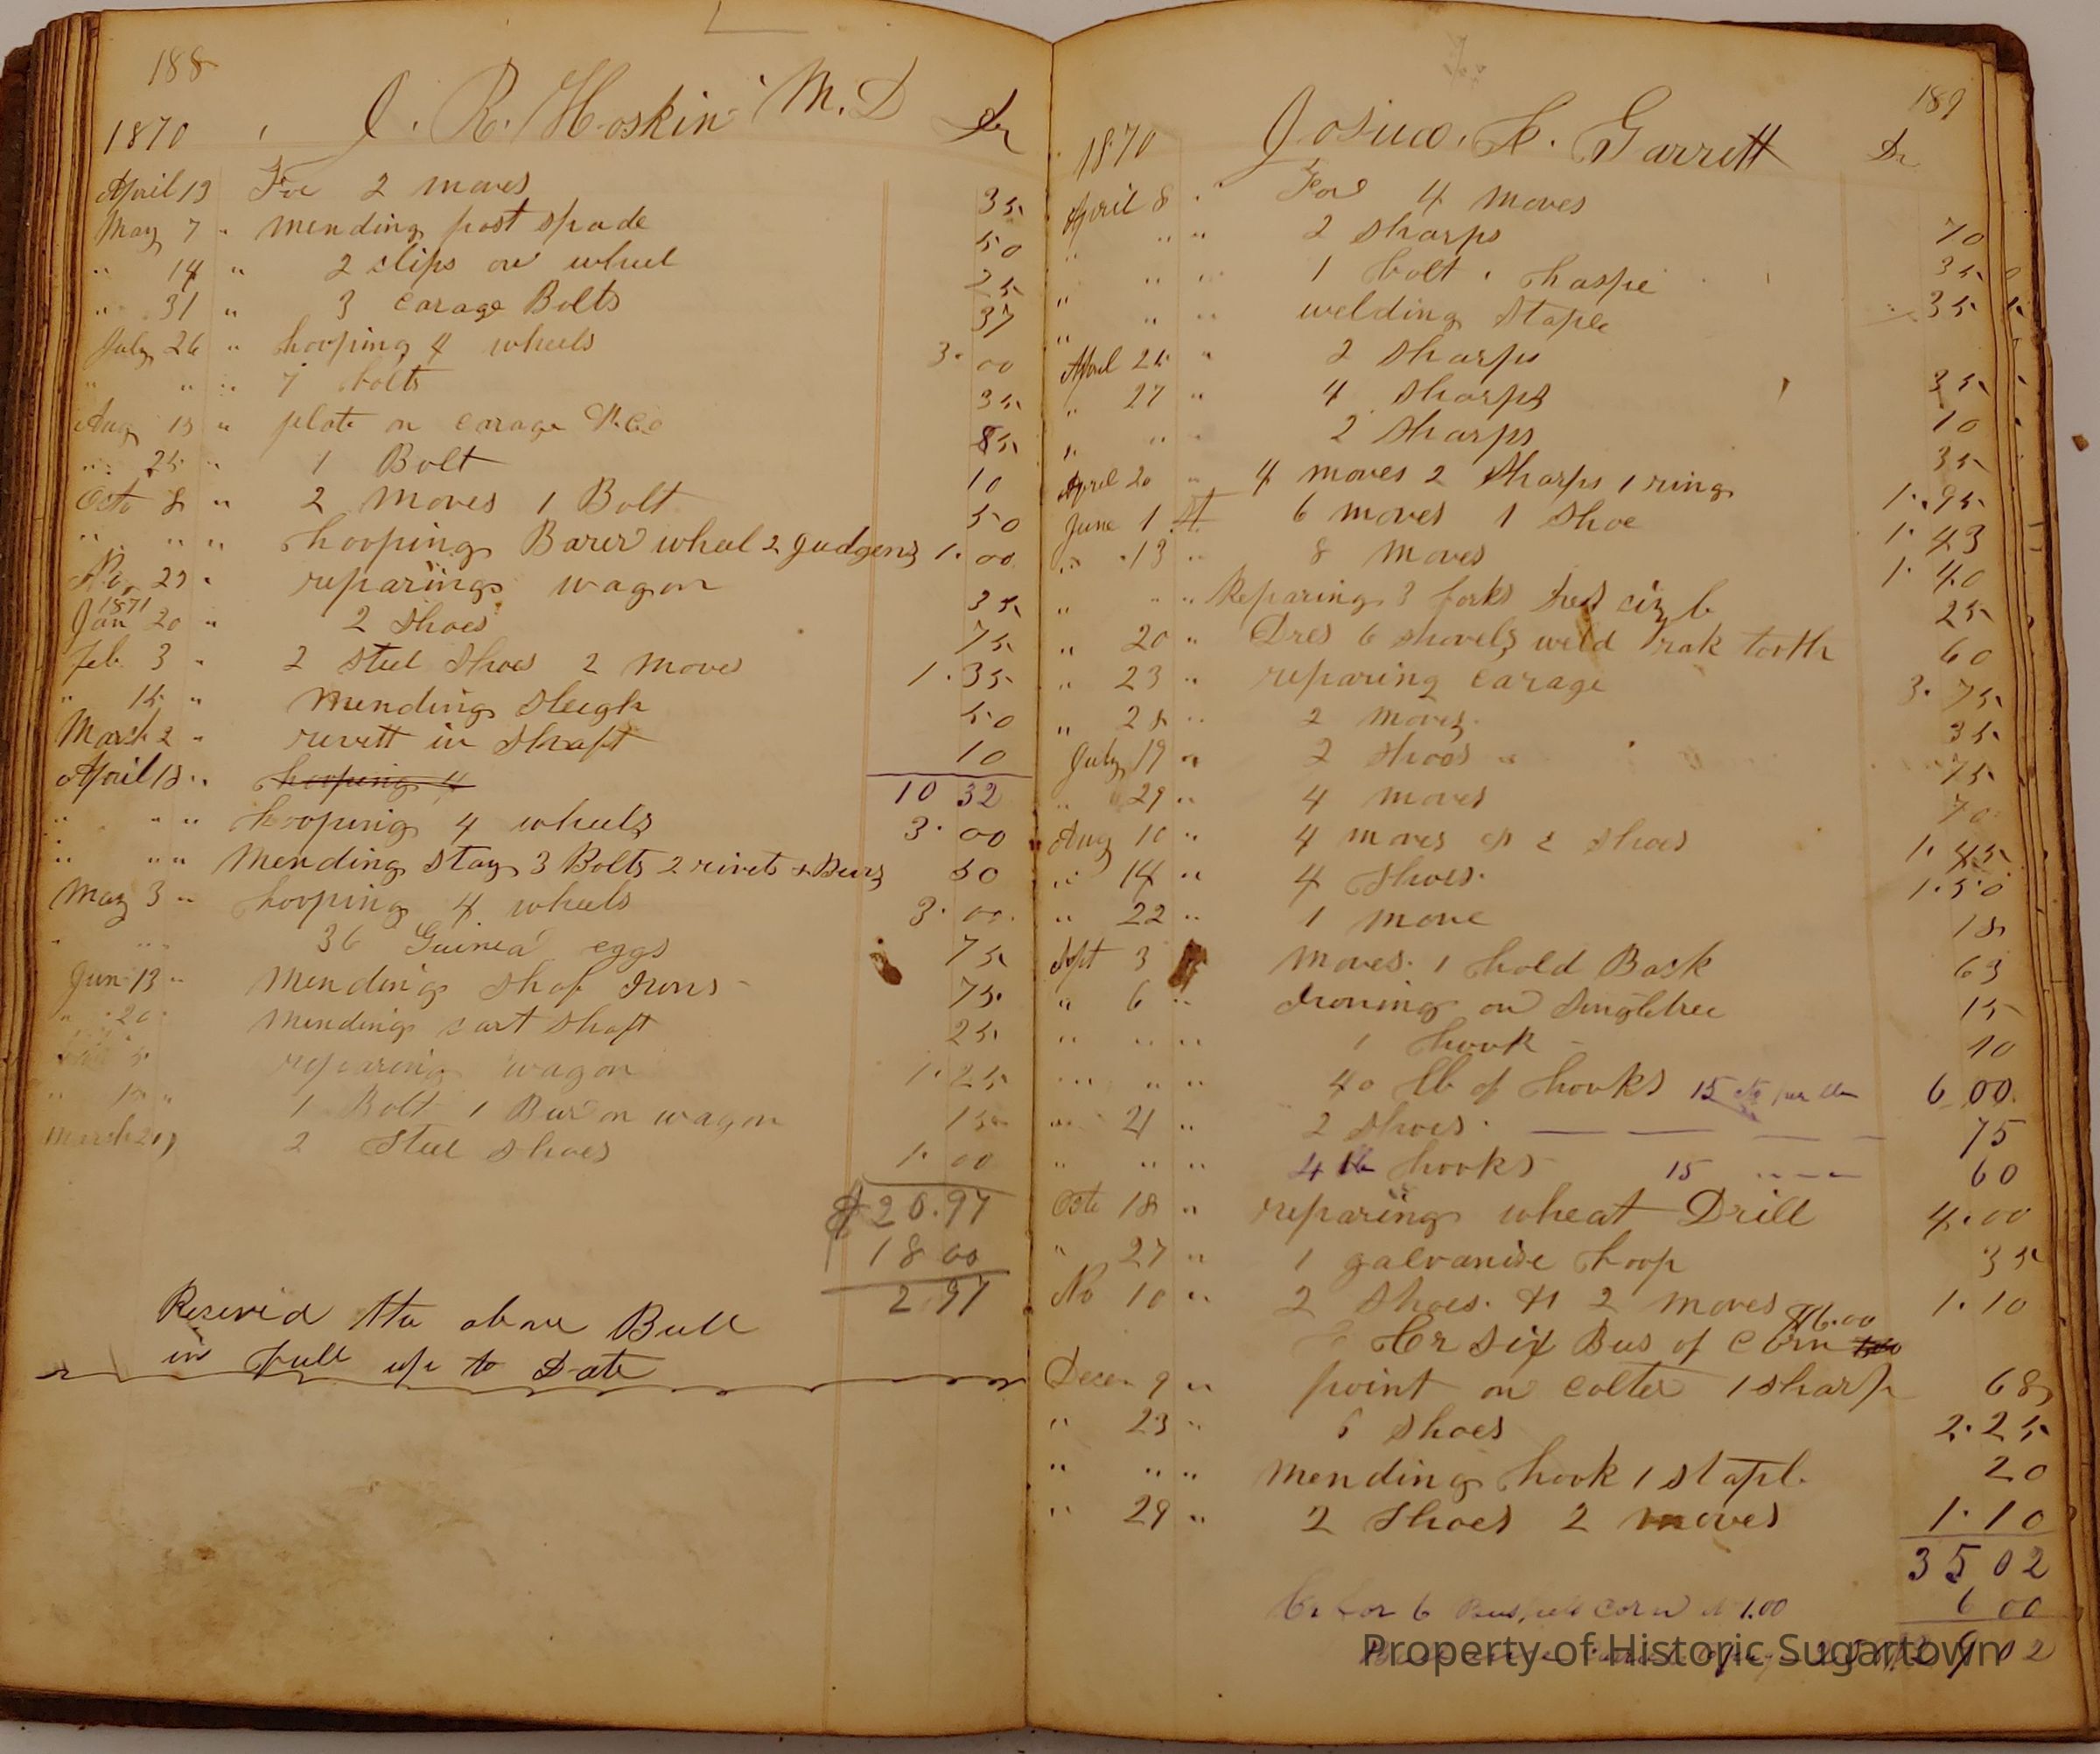 188
J. R. Hoskin M. D Dr
1870
April 19 For 2 moves 35
May 7 " mending post spade 50
" 14 " 2 clips on wheel 25
" 31 " 3 carage Bolts 37
July 26 " hooping 4 wheels 3.00
" " " 7 bolts 35
Aug 13 " plate on carage 85
" 25 " 1 Bolt 10
Octo 8 " 2 moves 1 Bolt 50
" " " hooping Barer wheel 2 gudgens 1.00
No 29 " reparing wagon 35
1871
Jan 20 " 2 shoes 75
Feb 3 " 2 steel shoes 2 moves 1.35
" 15 " mending sleigh 50
March 2 " revett in shaft 10
April 18 " hooping 4
10 32
" " " hooping 4 wheels 3.00
" " " mending stay 3 Bolts 2 rivets & Burs 50
May 3 " hooping 4 wheels 3.00
" " " 36 Guinea eggs 75
Jun 13 " mending shop Irons 75
" 20 mending cart shaft 25
reparing wagon 1.25
1 Bolt 1 Bur on wagon 15
March 2 Steel shoes 1.00
$20.97
18 00
2.97
Reseived the above Bill
in full up to Date
189
Josiua. H. Garrett Dr
1870
April 8 " For 4 moves 70
" " " 2 sharps 35
" " " 1 bolt 1 haspe 35
" " " welding staple
April 25 " 2 sharps 35
" 27 " 4 sharps 70
" " " 2 sharps 35
April 20 " 4 moves 2 sharps 1 ring 1.95
June 1 st 6 moves 1 shoe 1.43
" 13 " 8 moves 1.40
" " " Reparing 3 forks 25
" 20 " Dres 6 shovels weld rak tooth 60
" 23 " reparing carage 3.75
" 28 " 2 moves 35
July 19 " 2 shoos 75
" 29 " 4 moves 70
Aug 10 " 4 moves 2 shoes 1.45
" 14 " 4 shoes 1.50
" 22 " 1 move 18
Sept 3 moves. 1 hold Back 63
" 6 " Ironing on singletree 15
" " " 1 hook 10
" " " 40 lb of hooks 15 cts per lb 6 00
" 21 " 2 shoes 75
" " " 4 lb hooks 15 " 60
Octo 18 " reparing wheat Drill 4.00
" 27 " 1 galvanise hoop 35
No 10 " 2 shoes. & 2 moves 1.10
Cr six Bus of corn $6.00
Decem 9 " point on colter 1 sharp 68
" 23 " 6 shoes 2.25
" " " mending hook 1 stapl 20
" 29 " 2 shoes 2 moves 1.10
35 02
Cr for 6 Bushels corn at 1.00 6 00
29 02
Property of Historic Sugartown